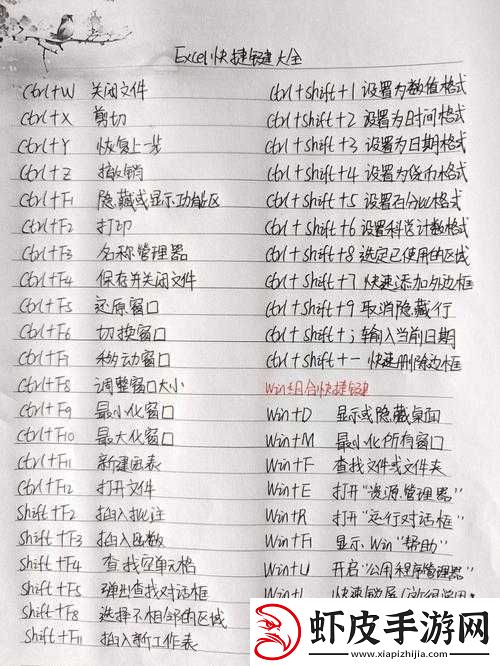 Excel快捷键大全
Ctrl+W 关闭文件
Ctrl+X 剪切
Ctrl+Y 恢复上一步
Ctrl+Z 撤销
Ctrl+F1 隐藏或显示功能区
Ctrl+F2 打印
Ctrl+F3 名称管理器
Ctrl+F4 保存并关闭文件
Ctrl+F5 还原窗口
Ctrl+F6 切换窗口
Ctrl+F7 移动窗口
Ctrl+F8 调整窗口大小
Ctrl+F9 最小化窗口
Ctrl+F10 最大化窗口
Ctrl+F11 新建图表
Ctrl+F12 打开文件
Shift+F2 插入批注
Shift+F3 插入函数
Shift+F4 查找空单元格
Shift+F5 弹出查找对话框
Shift+F8 选择不相邻的区域
Shift+F11 插入新工作表
Ctrl+Shift+1 设置为数值格式
Ctrl+Shift+2 设置为时间格式
Ctrl+Shift+3 设置为日期格式
Ctrl+Shift+4 设置为货币格式
Ctrl+Shift+5 设置百分比格式
Ctrl+Shift+6 设置科学计数格式
Ctrl+Shift+8 选定已使用的区域
Ctrl+Shift+7 快速添加外边框
Ctrl+Shift+9 取消隐藏行
Ctrl+Shift+; 输入当前日期
Ctrl+Shift+- 快速删除边框
Win组合快捷键
Win+D 显示或隐藏桌面
Win+M 最小化所有窗口
Win+F 查找文件或文件夹
Win+E 打开“资源管理器”
Win+R 打开“运行对话框”
Win+F1 显示Win“帮助”
Win+U 开启“公用程序管理器”
虾皮手游网
www.xiapizhijia.com